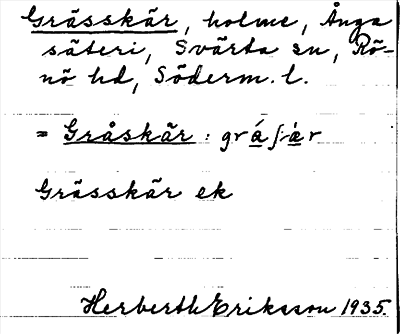 Grässkär, holme, Ånga
säteri, Svärta sn, Rö-
nö hd, Söderm. l.
= Gråskär : grá̱ʃà̱r
Grässkär ek
Herberth Eriksson 1935.